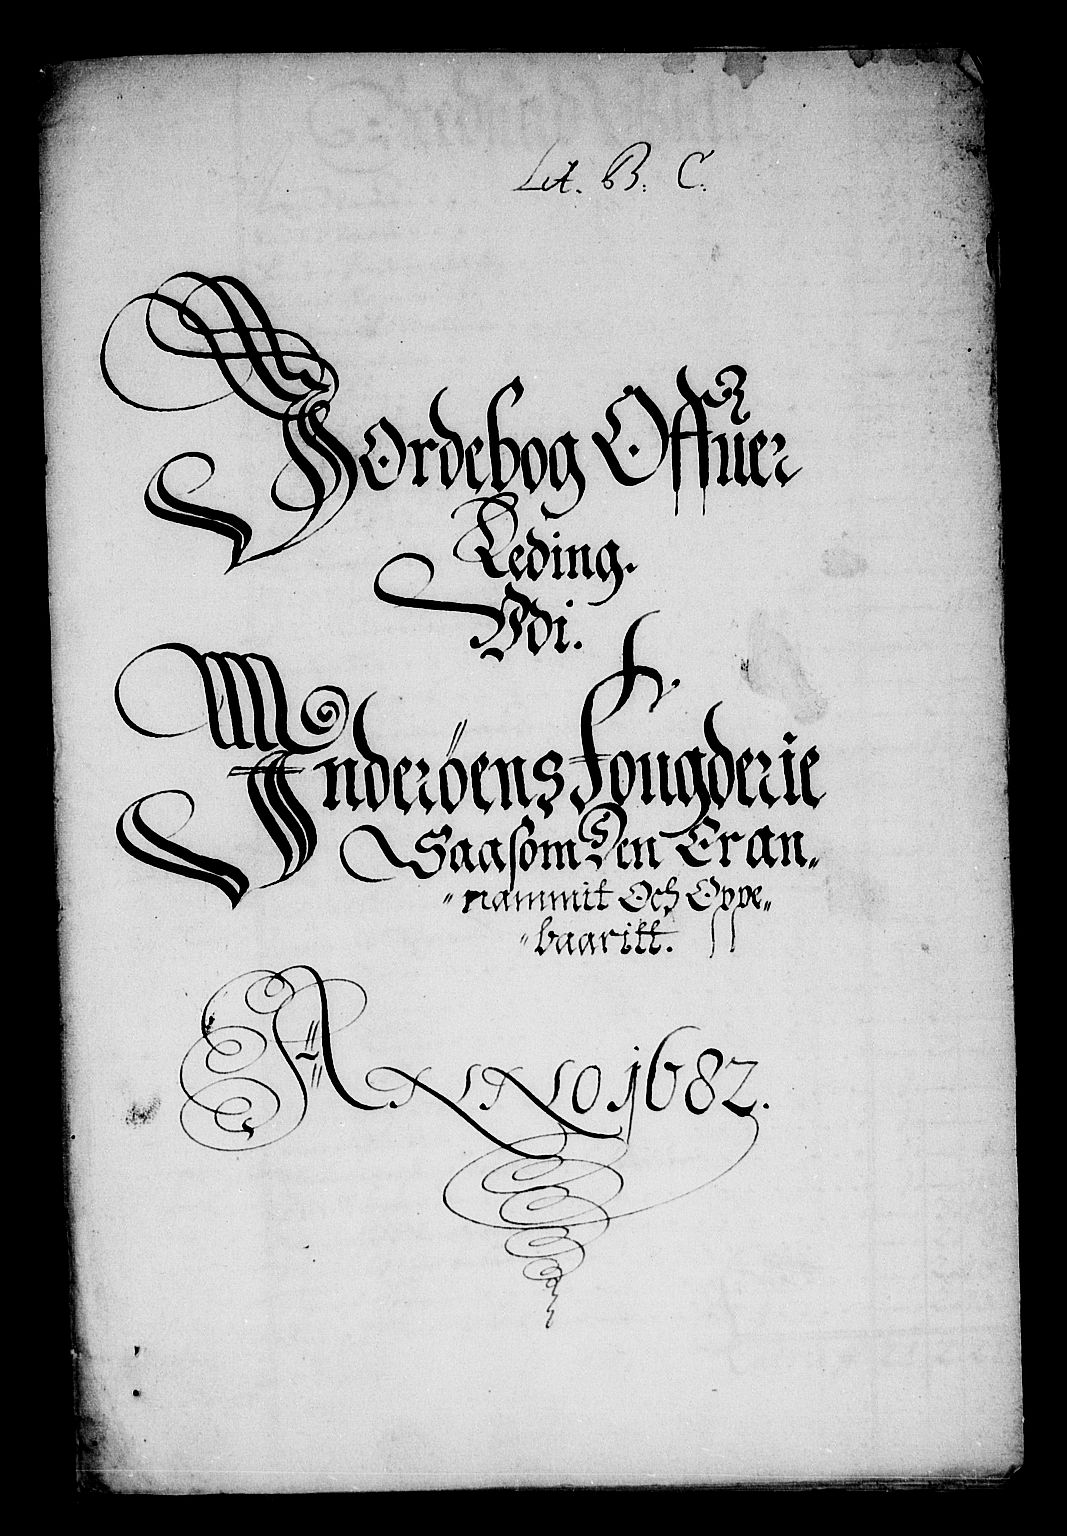 Lit. B. C.
Jordebog Offuer
Leding.
Udi.
Inderöens Fougderie
Saasom Den Er an„
„nammit Och Oppe„
„baaritt.
ANNO 1682.